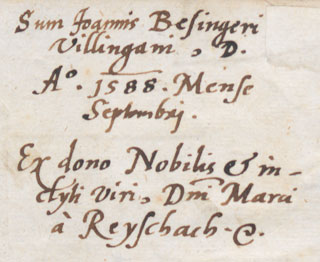 Sum Joannis Besingeri
Villingani, D.
Aº. 1588. Mense
Septembrj.
Ex dono Nobilis & in-
clyti viri, Dni Marci
à Reyschach. &.